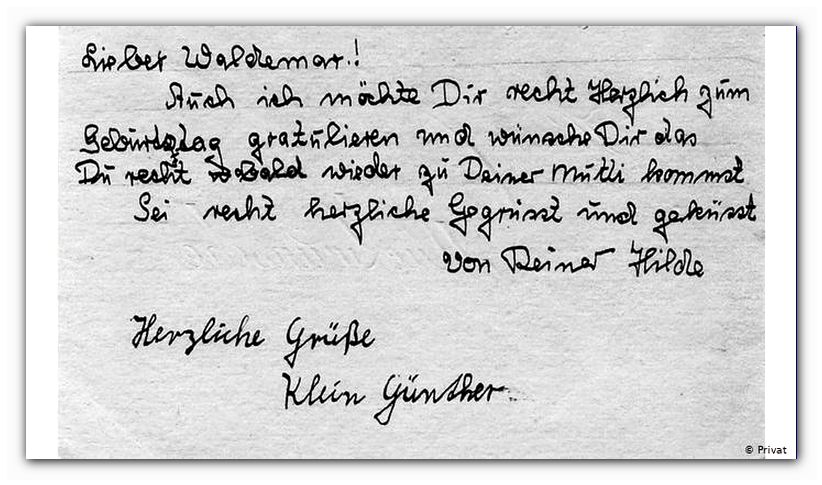 Lieber Waldemar!
Auch ich möchte Dir recht Herzlich zum
Geburtstag gratulieren und wünsche Dir das
Du recht bald wieder zu Deiner Mutti kommst
Sei recht herzliche Gegrüsst und geküsst
von Deiner Hilde
Herzliche Grüße
Klein Günther
© Privat